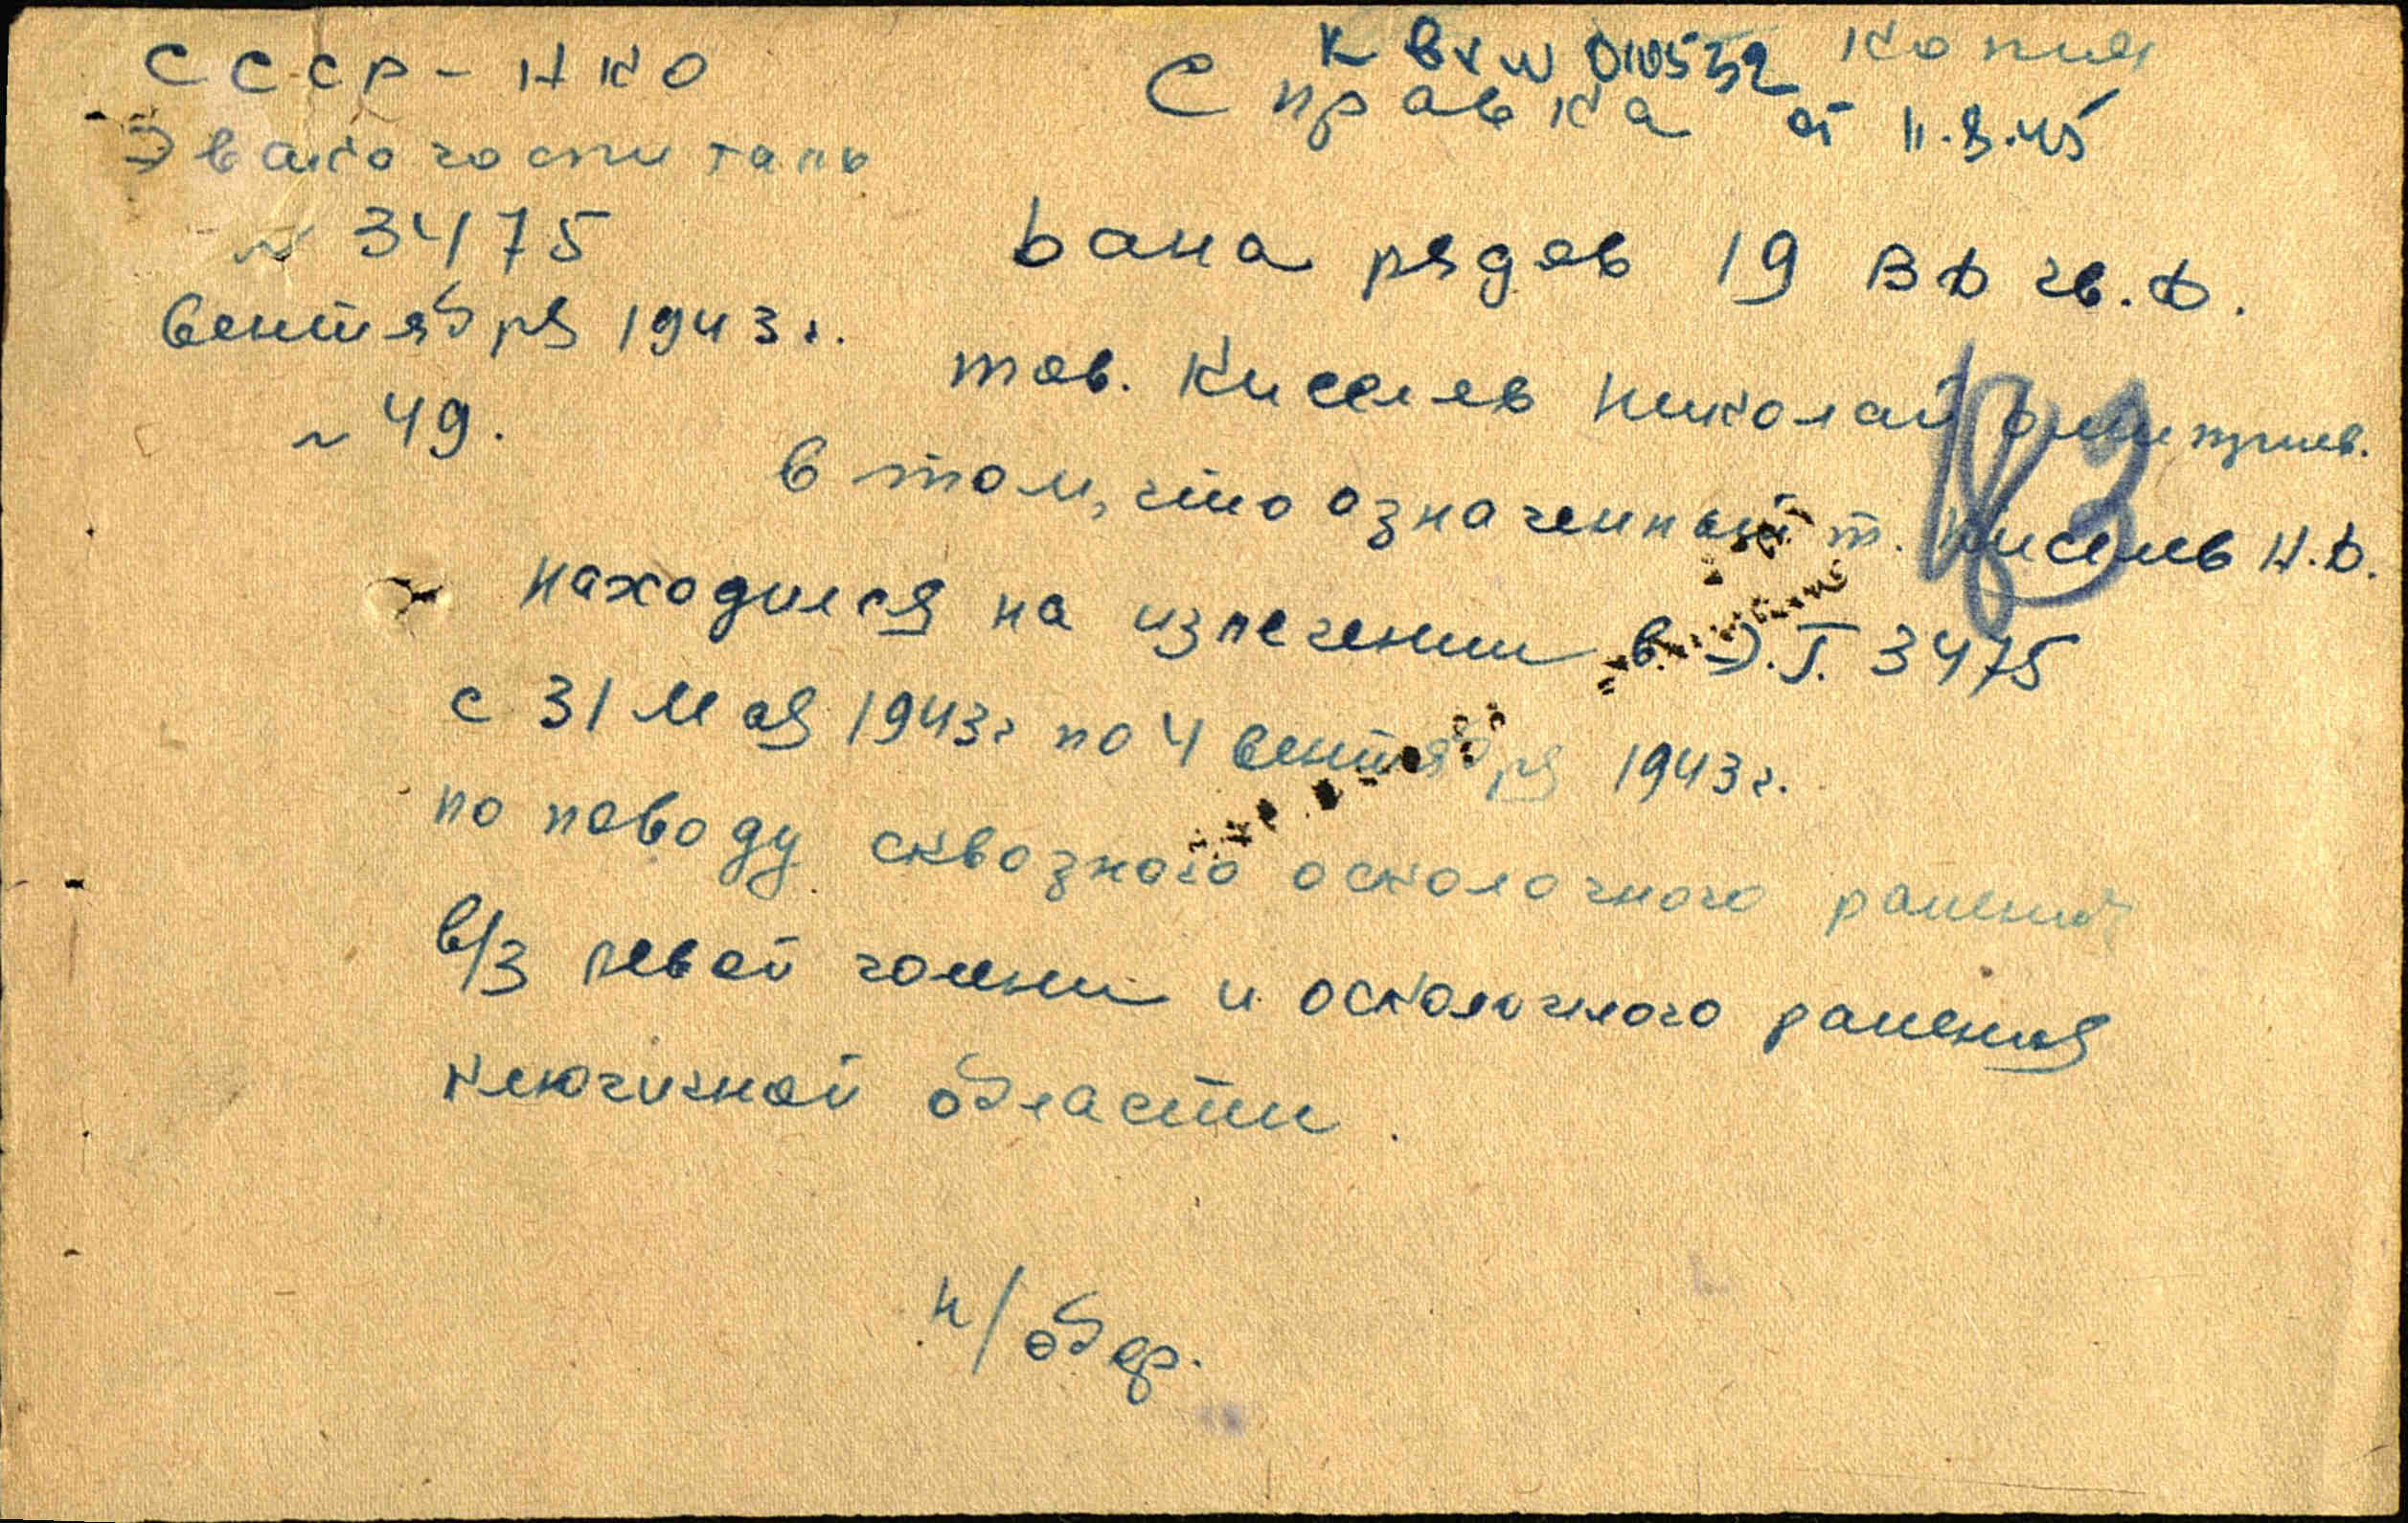 СССР - НКО
Эвакогоспиталь
№ 3475
Сентября 1943 г.
№ 49.
К вх № 010532
от 11.8.45
Копия
Справка
Дана рядов 19 ВД гв. Д.
тов. Киселев Николай Дмитриев.
в том, что означенный т. Киселев Н.Д.
находился на излечении в Э.Г. 3475
с 31 Мая 1943 г по 4 Сентября 1943 г.
по поводу сквозного осколочного ранения
в/з левой голени и осколочного ранения
ключичной области.
н/обор.